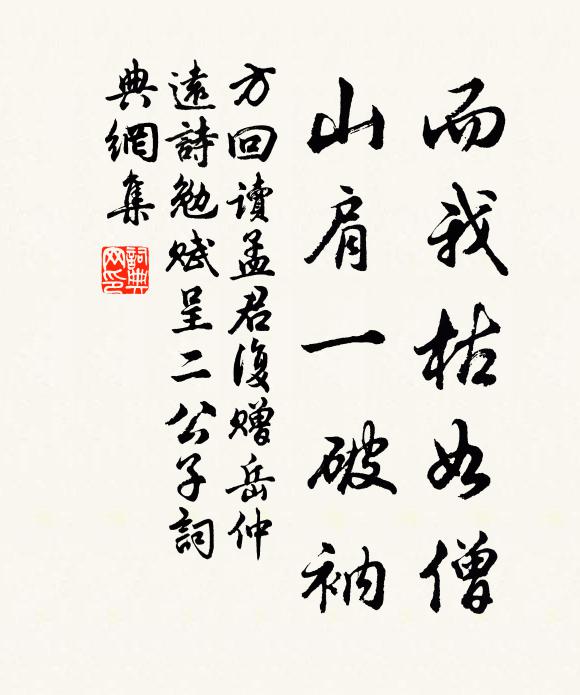 而我枯如僧
山肩一破衲
方回讀孟君復贈岳仲
遠詩勉賦呈二公子詞
典網集
詞典網印